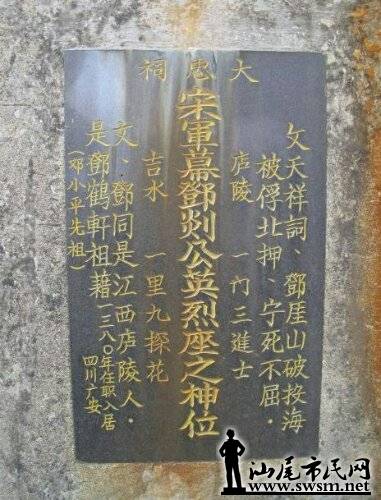 大忠祠
文天祥詞、鄧厓山破投海
被俘北押、宁死不屈.
庐陵 一门三進士
宋軍幕鄧剡公英烈座之神位
吉水 一里九探花
文、鄧同是江西庐陵人.
是鄧鶴軒祖藉 一三八〇年任職入居
四川广安
(邓小平先祖)
汕尾市民网
www.swsm.net